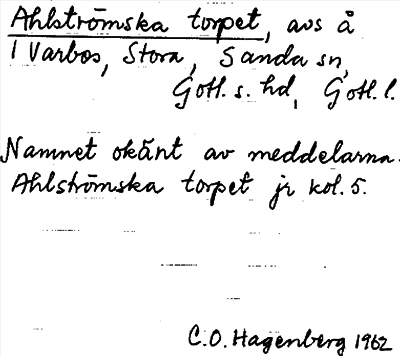 Ahlströmska torpet, avs å
1 Varbos, Stora, Sanda sn,
Gotl. s. hd, Gotl. l.
Namnet okänt av meddelarna.
Ahlströmska torpet jr kol. 5.
C.O. Hagenberg 1962